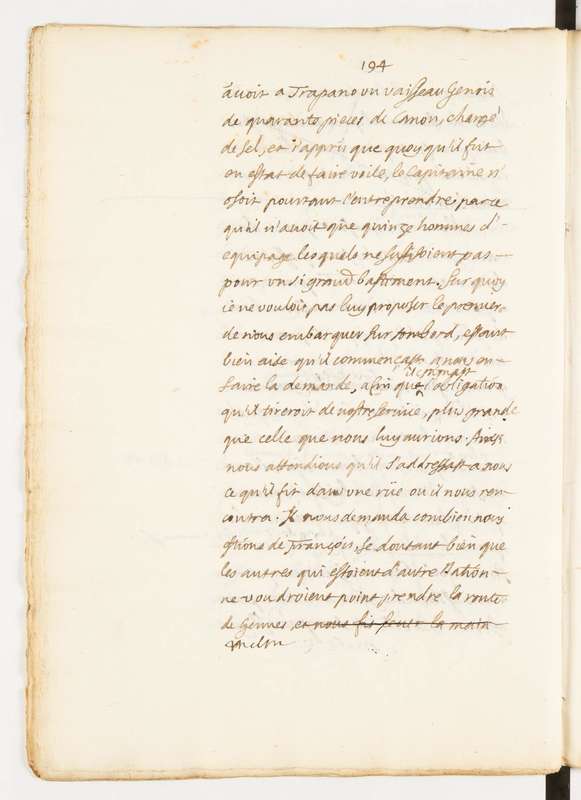 194
avoit a Trapano un vaisseau Genois
de quarante pieces de Canon, chargé
de sel, et i'appris que quoy qu'il fut
en estat de faire voile, le Capitaine n'
osoit pourtant l'entreprendre, parce
qu'il n'avoit que quinze hommes d'
equipage lesquels ne suffisoient pas
pour un si grand bastiment. Sur quoy
ie ne voulois pas luy proposer le premier
de nous embarquer sur son bord, estant
bien aise qu'il commençast a nous en
il signast
faire la demande, afin que l'obligation
qu'il tireroit de nostre service, plus grande
que celle que nous luy aurions. Ainsi
nous attendions qu'il s'addressast a nous
ce qu'il fit dans une rüe ou il nous ren-
contra. Il nous demanda combien nous
estions de François, se doutant bien que
les autres qui estoient d'autre Nation
ne voudroient point prendre la route
de Gennes, et nous fit la main